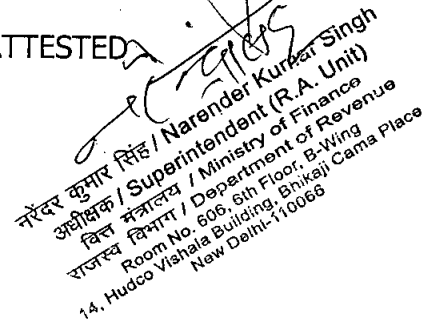 ATTESTED
नरेंदर कुमार सिंह / Narender Kumar Singh
अधीक्षक / Superintendent (R.A. Unit)
वित्त मंत्रालय / Ministry of Finance
राजस्व विभाग / Department of Revenue
Room No. 606, 6th Floor, B-Wing
14, Hudco Vishala Building, Bhikaji Cama Place
New Delhi-110066